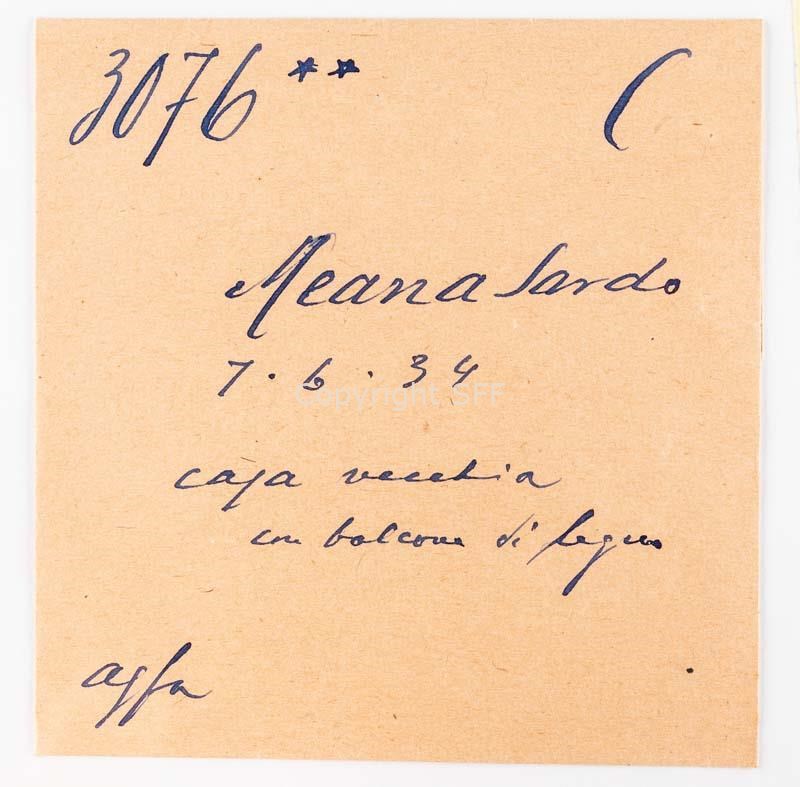 3076 ** (
Meana Sardo
7.6.34
Copyright SFF
casa vecchia
con balcone di legno
agfa